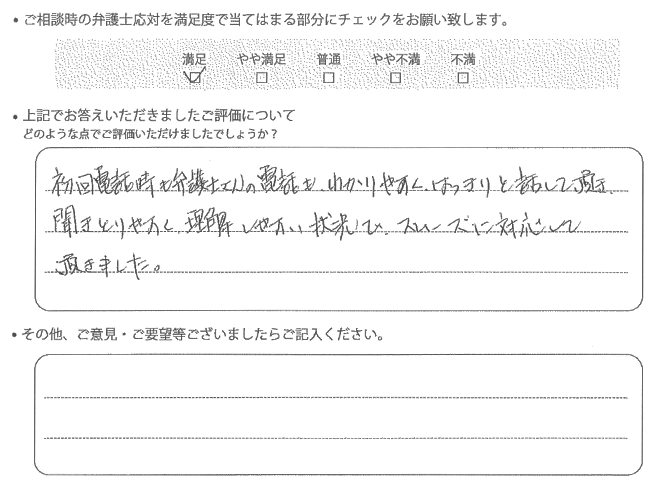 • ご相談時の弁護士応対を満足度で当てはまる部分にチェックをお願い致します。
満足 やや満足 普通 やや不満 不満
• 上記でお答えいただきましたご評価について
どのような点でご評価いただけましたでしょうか？
初回電話時も弁護士さんの電話も、わかりやすく、はっきりと話して頂き、
聞きとりやすく、理解しやすい状況で、スムーズに対応して
頂きました。
• その他、ご意見・ご要望等ございましたらご記入ください。